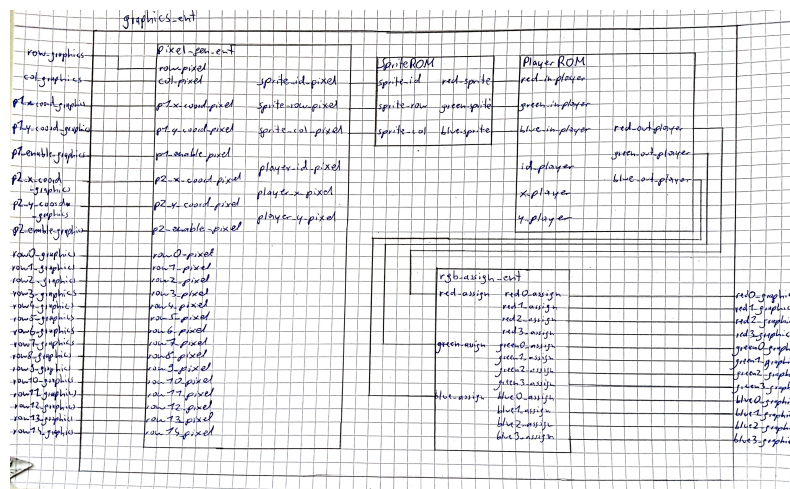 graphics_ent
row_graphics
col_graphics
p1_x_coord_graphics
p1_y_coord_graphics
p1_enable_graphics
p2_x_coord
_graphics
p2_y_coord
_graphics
p2_enable_graphics
row0_graphics
row1_graphics
row2_graphics
row3_graphics
row4_graphics
row5_graphics
row6_graphics
row7_graphics
row8_graphics
row9_graphics
row10_graphics
row11_graphics
row12_graphics
row13_graphics
row14_graphics
pixel_gen_ent
row_pixel
col_pixel
p1_x_coord_pixel
p1_y_coord_pixel
p1_enable_pixel
p2_x_coord_pixel
p2_y_coord_pixel
p2_enable_pixel
row0_pixel
row1_pixel
row2_pixel
row3_pixel
row4_pixel
row5_pixel
row6_pixel
row7_pixel
row8_pixel
row9_pixel
row10_pixel
row11_pixel
row12_pixel
row13_pixel
row14_pixel
sprite_id_pixel
sprite_row_pixel
sprite_col_pixel
player_id_pixel
player_x_pixel
player_y_pixel
SpriteROM
sprite_id
sprite_row
sprite_col
red_sprite
green_sprite
blue_sprite
PlayerROM
red_in_player
green_in_player
blue_in_player
id_player
x_player
y_player
red_out_player
green_out_player
blue_out_player
rgb_assign_ent
red_assign
green_assign
blue_assign
red0_assign
red1_assign
red2_assign
red3_assign
green0_assign
green1_assign
green2_assign
green3_assign
blue0_assign
blue1_assign
blue2_assign
blue3_assign
red0_graphi
red1_graphi
red2_graphi
red3_graphi
green0_graph
green1_graph
green2_graph
green3_graph
blue0_graph
blue1_graph
blue2_graph
blue3_graph